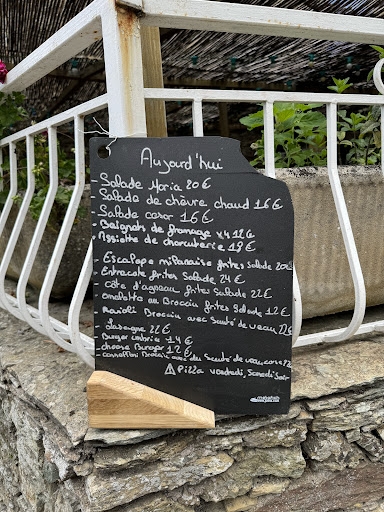 Aujourd'hui
Salade Maria 20 €
Salade de chèvre chaud 16 €
Salade cesar 16 €
Beignets de fromage x4 12 €
Assiette de charcuterie 19 €
Escalope milanaise frites Salade 20€
Entrecote frites Salade 24 €
Côte d'agneau frites Salade 22 €
omelette au Brocciu frites Salade 12€
Ravioli Brocciu avec Sauté de veau 22€
Lasagne 22 €
Burger ombria 14 €
cheese Burger 12 €
cannelloni Brocciu avec du Sauté de veau corse 22
⚠ Pizza vendredi, Samedi Soir